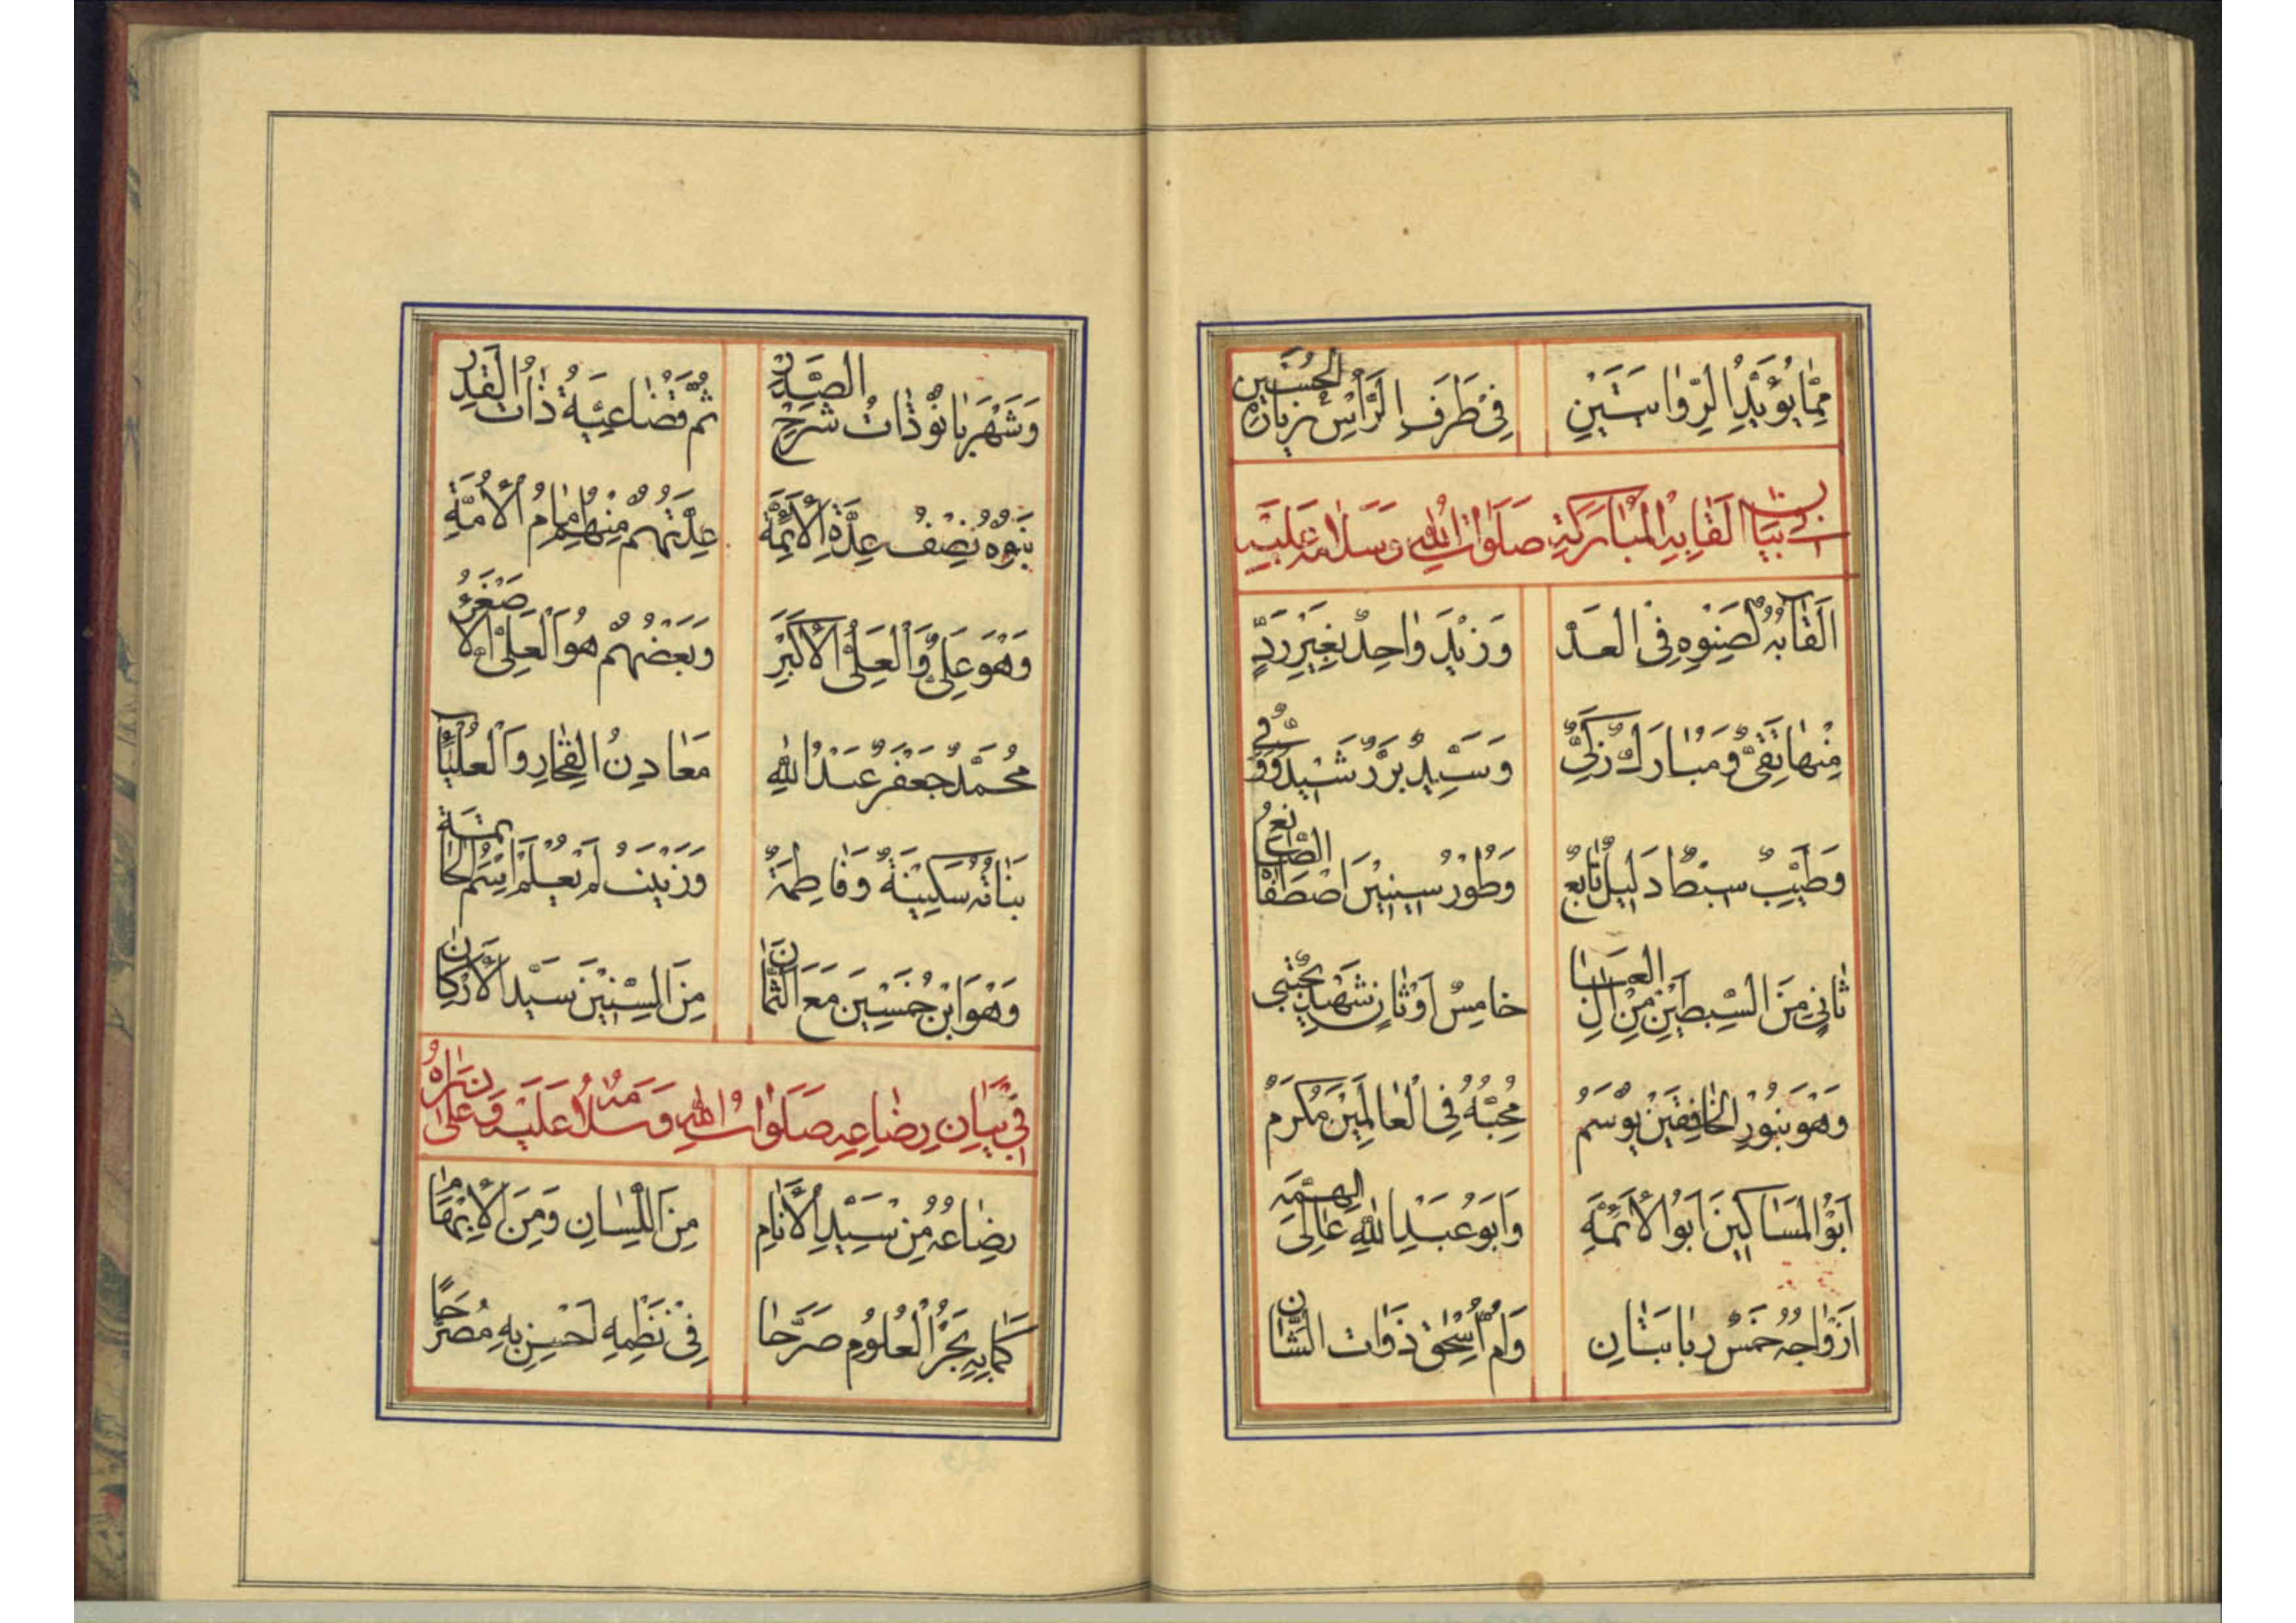 مِمَّا يُؤَيِّدُ الرِّوَايَتَيْنِ فِي طَرَفِ الرَّأْسِ زِيَارَةُ الْحُسَيْنِ
فِي بَيَانِ أَلْقَابِهِ الْمُبَارَكَةِ صَلَوَاتُ اللهِ وَسَلَامُهُ عَلَيْهِ
أَلْقَابُهُ لِصِنْوِهِ فِي الْعَدْ وَزِيدَ وَاحِدٌ بِغَيْرِ رَدٍّ
مِنْهَا تَقِيٌّ وَمُبَارَكٌ زَكِيٌّ وَسَيِّدٌ بَرٌّ رَشِيدٌ وَوَفِيُّ
وَطَيِّبٌ سِبْطٌ دَلِيلٌ تَابِعٌ وَطُورُ سِينِينَ اصْطَفَاهُ الصَّانِعُ
ثَانِي مِنَ السِّبْطَيْنِ مِنْ آلِ الْعَبَا خَامِسُ أَوْ ثَانٍ شَهِيدٌ مُجْتَبَى
وَهْوَ بِنُورِ الْخَافِقَيْنِ يُوسَمُ مُحِبُّهُ فِي الْعَالَمِينَ مُكْرَمُ
أَبُو الْمَسَاكِينَ أَبُو الْأَئِمَّةِ وَأَبُو عَبْدِ اللهِ عَالِي الْهِمَّةِ
أَزْوَاجُهُ خَمْسٌ رَبَابَتَانِ وَأُمُّ إِسْحَقَ ذَوَاتُ الشَّانِ
وَشَهْرَبَانُو ذَاتُ شَرْحِ الصَّدْرِ ثُمَّ قُضَاعِيَّةُ ذَاتُ الْقَدْرِ
بَنُوهُ نِصْفُ عِدَّةِ الْأَئِمَّةِ عِدَّتُهُمْ مِنْهُمْ إِمَامُ الْأُمَّةِ
وَهْوَ عَلِيٌّ وَالْعَلِيُّ الْأَكْبَرُ وَبَعْضُهُمْ هُوَ الْعَلِيُّ الْأَصْغَرُ
مُحَمَّدٌ جَعْفَرٌ عَبْدُ اللهِ مَعَادِنُ الْفَخَارِ وَالْعُلْيَا
بَنَاتُهُ سَكِينَةٌ وَفَاطِمَةٌ وَزَيْنَبُ لَمْ يُعْلَمْ اسْمُ الْخَاتِمَةِ
وَهْوَ ابْنُ خَمْسِينَ مَعَ الثَّمَانِ مِنَ السِّنِينَ سَيِّدُ الْأَرْكَانِ
فِي بَيَانِ رِضَاعِهِ صَلَوَاتُ اللهِ وَسَلَامُهُ عَلَيْهِ وَعَلَى
رِضَاعُهُ مِنْ سَيِّدِ الْأَنَامِ مِنَ اللِّسَانِ وَمِنَ الْإِبْهَامِ
كَمَا بِهِ بَحْرُ الْعُلُومِ صَرَّحَا فِي نَظْمِهِ أَحْسِنْ بِهِ مُصَرِّحًا